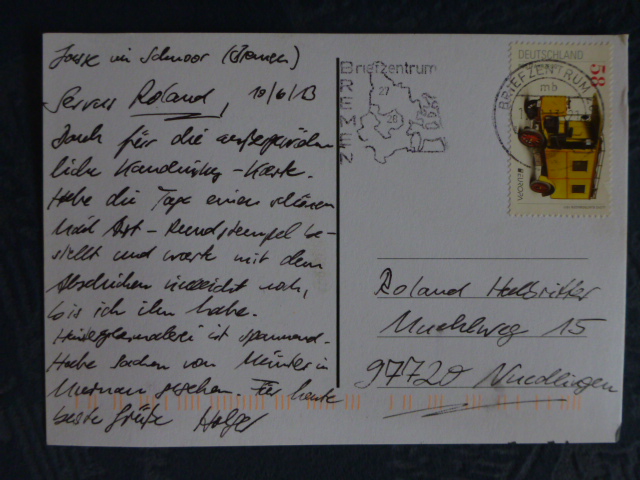 Jause im Schnoor (Bremen)
Servus Roland, 10/6/13
Dank für die außergewöhn-
liche Kandinsky-Karte.
Habe die Tage einen schönen
Mail Art-Rundstempel be-
stellt und warte mit dem
Abschicken vielleicht noch,
bis ich ihn habe.
Hinterglasmalerei ist spannend.
Habe Sachen von Münter in
Murnau gesehen. Für heute
beste Grüße Holger
Briefzentrum
BREMEN
27
28
DEUTSCHLAND
58
BRIEFZENTRUM
mb
EUROPA
Roland Halbritter
Muehlweg 15
97720 Nuedlingen